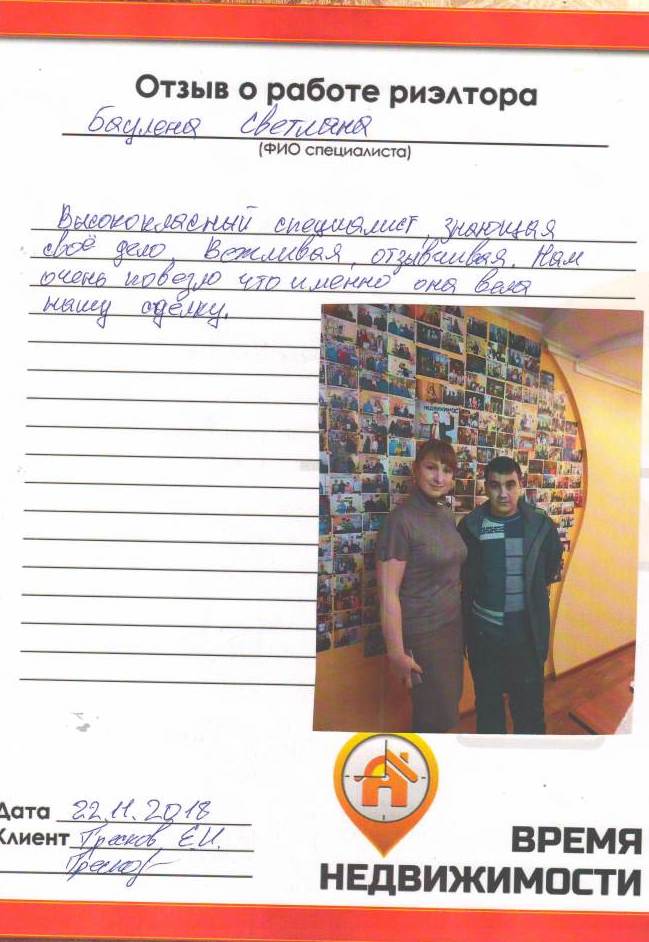 Отзыв о работе риэлтора
Баулена Светлана
(ФИО специалиста)
Высококласный специалист, знающая
своё дело. Вежливая, отзывчивая. Нам
очень повезло что именно она вела
нашу сделку.
НЕДВИЖИМОС
Дата 22.11.2018
Клиент Тресков Е.И.
Тресков
ВРЕМЯ
НЕДВИЖИМОСТИ